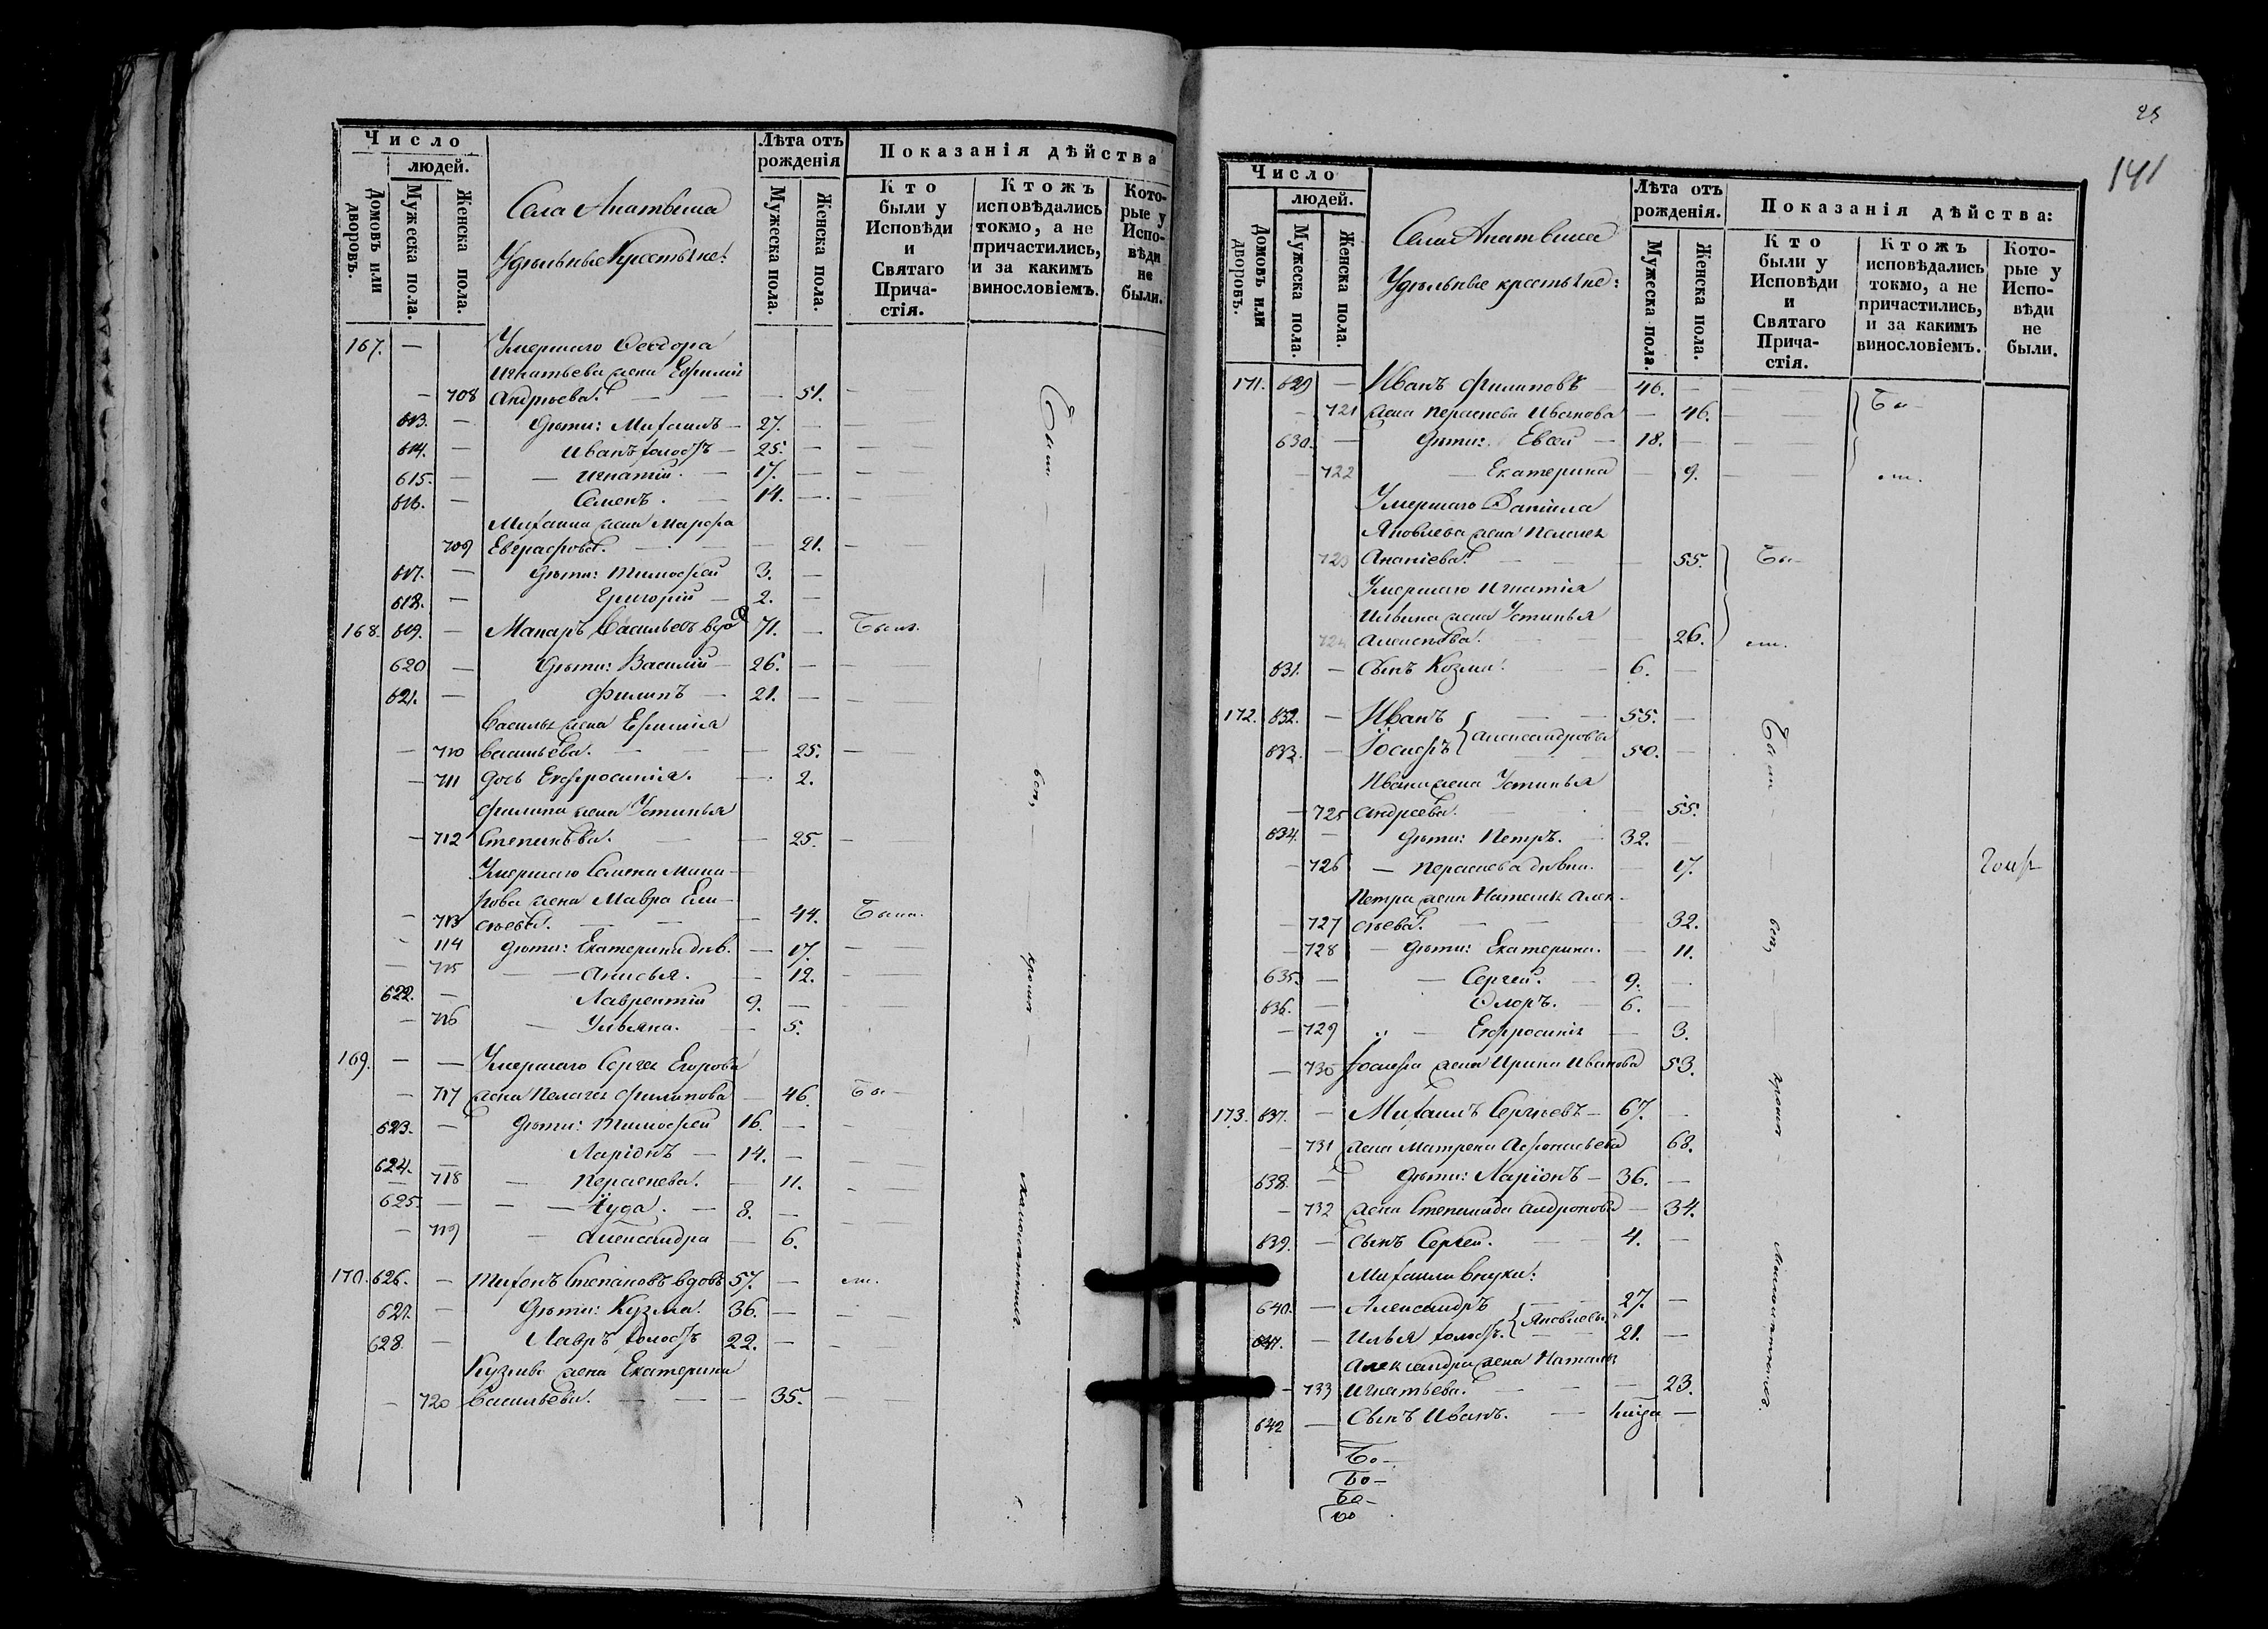 Число
людей.
Домовъ или дворовъ.
Мужеска пола.
Женска пола.
Села
Удѣльные Крестьяне:
Лѣта отъ рожденія
Мужеска пола.
Женска пола.
Показанія дѣйства
Кто были у Исповѣди и Святаго Прича-стія.
Ктожъ исповѣдались токмо, а не причастились, и за какимъ винословіемъ.
Кото-рые у Испо-вѣди не были.
167. — Умершаго Ѳеодора
Игнатьева жена Ефимія
— 708 Андрѣева. — — — 51. —
613. — Дѣти: Михаилъ — 27. —
614. — Иванъ холостъ — 25. —
615. — — Игнатій. — 17. —
616. — Семенъ. — 14. —
Михаила жена Марѳа
709 Евграфова. — — 21. —
617. — Дѣти: Тимоѳей 3. —
618. — Григорій — 2. —
168. 619. — Макаръ Васильевъ вдо 71. — Былъ.
620 — Дѣти: Василій — 26. —
621. — Филипъ — 21. —
Василья жена Ефимія
— 710 Васильева. — — — 25. —
— 711 Дочь Евфросинія. — 2.
Филипа жена Устинья
— 712 Степанова. — — 25. —
Умершаго Семена Мака-
рова жена Мавра Ели-
— 713 сѣева. — — — 44. Была.
714 Дѣти: Екатерина дѣв. — 17. —
— 715 — — Анисья. — 12. —
622. — Лаврентій 9. —
— 716 — Ульяна. — 5.
169. — — Умершаго Сергѣя Егорова
— 717 жена Пелагея Филипова — 46. Бы —
623. — Дѣти: Тимоѳей 16. —
624. — Ларіонъ — 14. —
— 718 — Параскева. — 11. —
625. — — — Іуда. — 8. —
— 719 — Александра — 6.
170. 626. — Тихонъ Степановъ вдовъ 57. — ли.
627. — Дѣти: Кузма. 36. —
628. — Лавръ холостъ 22. —
Кузмы жена Екатерина
— 720 Васильева. — — — 35. —
Были
всѣ,
кромѣ
малолѣтнихъ.
141
Число
людей.
Домовъ или дворовъ.
Мужеска пола.
Женска пола.
Села
Удѣльные крестьяне:
Лѣта отъ рожденія.
Мужеска пола.
Женска пола.
Показанія дѣйства:
Кто были у Исповѣди и Святаго Прича-стія.
Ктожъ исповѣдались токмо, а не причастились, и за какимъ винословіемъ.
Кото-рые у Испо-вѣди не были.
171. 629 — Иванъ Филиповъ — 46. —
— 721 жена Параскева Иванова — 46. — Бы —
630. — Дѣти: Евсей — 18. —
— 722 — Екатерина — 9. — ли.
Умершаго Даніила
Яковлева жена Пелагея
723 Ананіева. — — — 55. Бы —
Умершаго Игнатія
Ильина жена Устинья
724 Алексѣева. — — 26. ли.
631. — Сынъ Козма. — — 6. —
172. 632. — Иванъ — — 55. —
633. — Іосифъ Александровы 50. —
Ивана жена Устинья
— 725 Андреева. — — 55.
634. — Дѣти: Петръ. — 32. —
— 726 — Параскева дѣвка. — 17.
Петра жена Наталья Алек-
— 727 сѣева. — — — 32.
— 728 — Дѣти: Екатерина. — 11.
635. — — Сергей. — 9. —
636. — Флоръ. — 6. —
— 729 — Евфросинія — 3.
— 730 Іосифа жена Ирина Иванова 53.
173. 637. — Михаилъ Сергѣевъ — 67. —
— 731 жена Матрена Афонасьева 68.
638. — Дѣти: Ларіонъ — 36. —
— 732 жена Степанида Андронова — 34.
639. — Сынъ Сергей. — — 4. —
Михаила внуки:
640. — Александръ — — 27. —
641. — Илья холостъ. Яковлевы — 21. —
Александра жена Наталья
— 733 Игнатьева. — — — 23.
642 — Сынъ Иванъ. — —
Были
всѣ,
кромѣ
малолѣтнихъ.